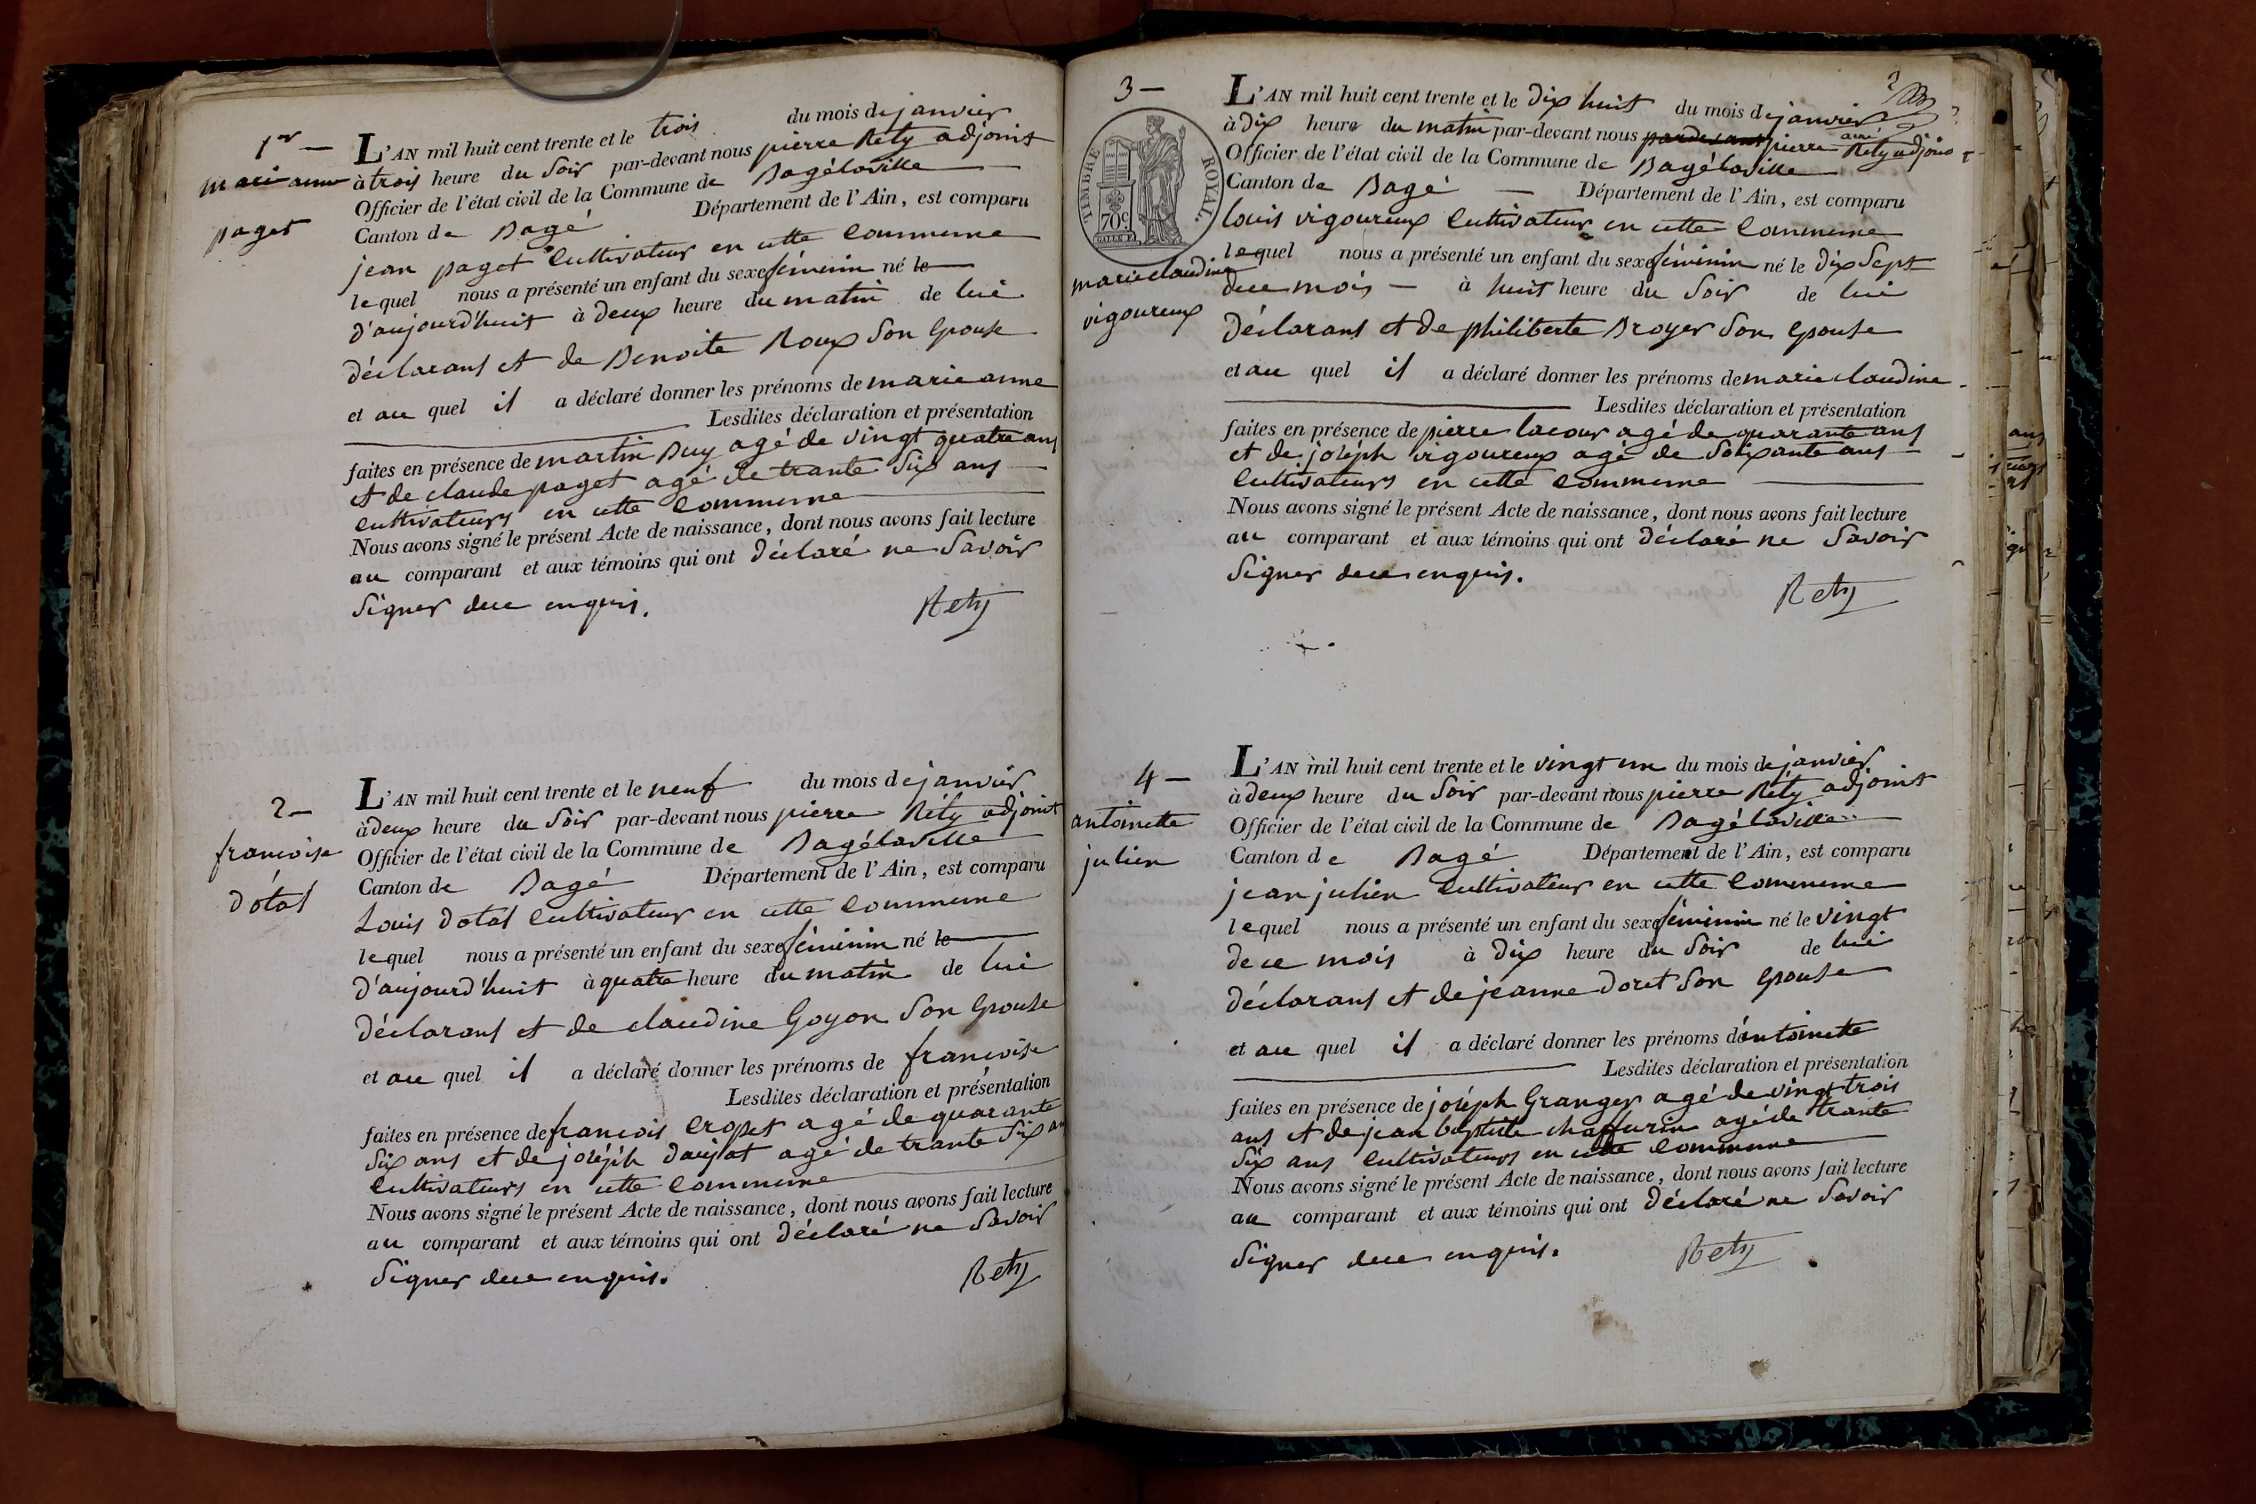 1er —
marie anne
paget
L'AN mil huit cent trente et le trois du mois de janvier
à trois heure du soir par-devant nous pierre Réty adjoint
Officier de l'état civil de la Commune de Bagélaville
Canton de Bagé Département de l'Ain, est comparu
jean paget cultivateur en cette commune
lequel nous a présenté un enfant du sexe féminin né le
d'aujourd'huit à deux heure du matin de lui
déclarant et de Benoite Roux son epouse
et au quel il a déclaré donner les prénoms de marie anne
Lesdites déclaration et présentation
faites en présence de martin Buy agé de vingt quatre ans
et de claude paget agé de trante six ans
cultivateurs en cette commune
Nous avons signé le présent Acte de naissance, dont nous avons fait lecture
au comparant et aux témoins qui ont déclaré ne savoir
signer de ce enquis.
Rety
2 —
francoise
dotal
L'AN mil huit cent trente et le neuf du mois de janvier
à deux heure du soir par-devant nous pierre Réty adjoint
Officier de l'état civil de la Commune de Bagélaville
Canton de Bagé Département de l'Ain, est comparu
Louis dotal cultivateur en cette commune
lequel nous a présenté un enfant du sexe féminin né le
d'aujourd'huit à quatre heure du matin de lui
déclarant et de claudine Goyon son epouse
et au quel il a déclaré donner les prénoms de francoise
Lesdites déclaration et présentation
faites en présence de francois cropet agé de quarante
six ans et de joséph daujat agé de trante six ans
cultivateurs en cette commune
Nous avons signé le présent Acte de naissance, dont nous avons fait lecture
au comparant et aux témoins qui ont déclaré ne savoir
signer de ce enquis.
Rety
3 —
TIMBRE ROYAL
70c
marie claudine
vigoureux
L'AN mil huit cent trente et le dix huit du mois de janvier
à dix heure du matin par-devant nous pardevant pierre Réty adjoint
Officier de l'état civil de la Commune de Bagélaville
Canton de Bagé — Département de l'Ain, est comparu
louis vigoureux cultivateur en cette commune
lequel nous a présenté un enfant du sexe féminin né le dix sept
de ce mois — à huit heure du soir de lui
déclarant et de philiberte Broyer son epouse
et au quel il a déclaré donner les prénoms de marie claudine
Lesdites déclaration et présentation
faites en présence de pierre lacour agé de quarante ans
et de joséph vigoureux agé de soixante ans
cultivateurs en cette commune
Nous avons signé le présent Acte de naissance, dont nous avons fait lecture
au comparant et aux témoins qui ont déclaré ne savoir
signer de ce enquis.
Rety
4 —
antoinette
julien
L'AN mil huit cent trente et le vingt un du mois de janvier
à deux heure du soir par-devant nous pierre Réty adjoint
Officier de l'état civil de la Commune de Bagélaville
Canton de Bagé Département de l'Ain, est comparu
jean julien cultivateur en cette commune
lequel nous a présenté un enfant du sexe féminin né le vingt
de ce mois à dix heure du soir de lui
déclarant et de jeanne doret son epouse
et au quel il a déclaré donner les prénoms d'antoinette
Lesdites déclaration et présentation
faites en présence de joséph Granger agé de vingt trois
ans et de jean baptiste chaffurin agé de trante
six ans cultivateurs en cette commune
Nous avons signé le présent Acte de naissance, dont nous avons fait lecture
au comparant et aux témoins qui ont déclaré ne savoir
signer de ce enquis.
Rety